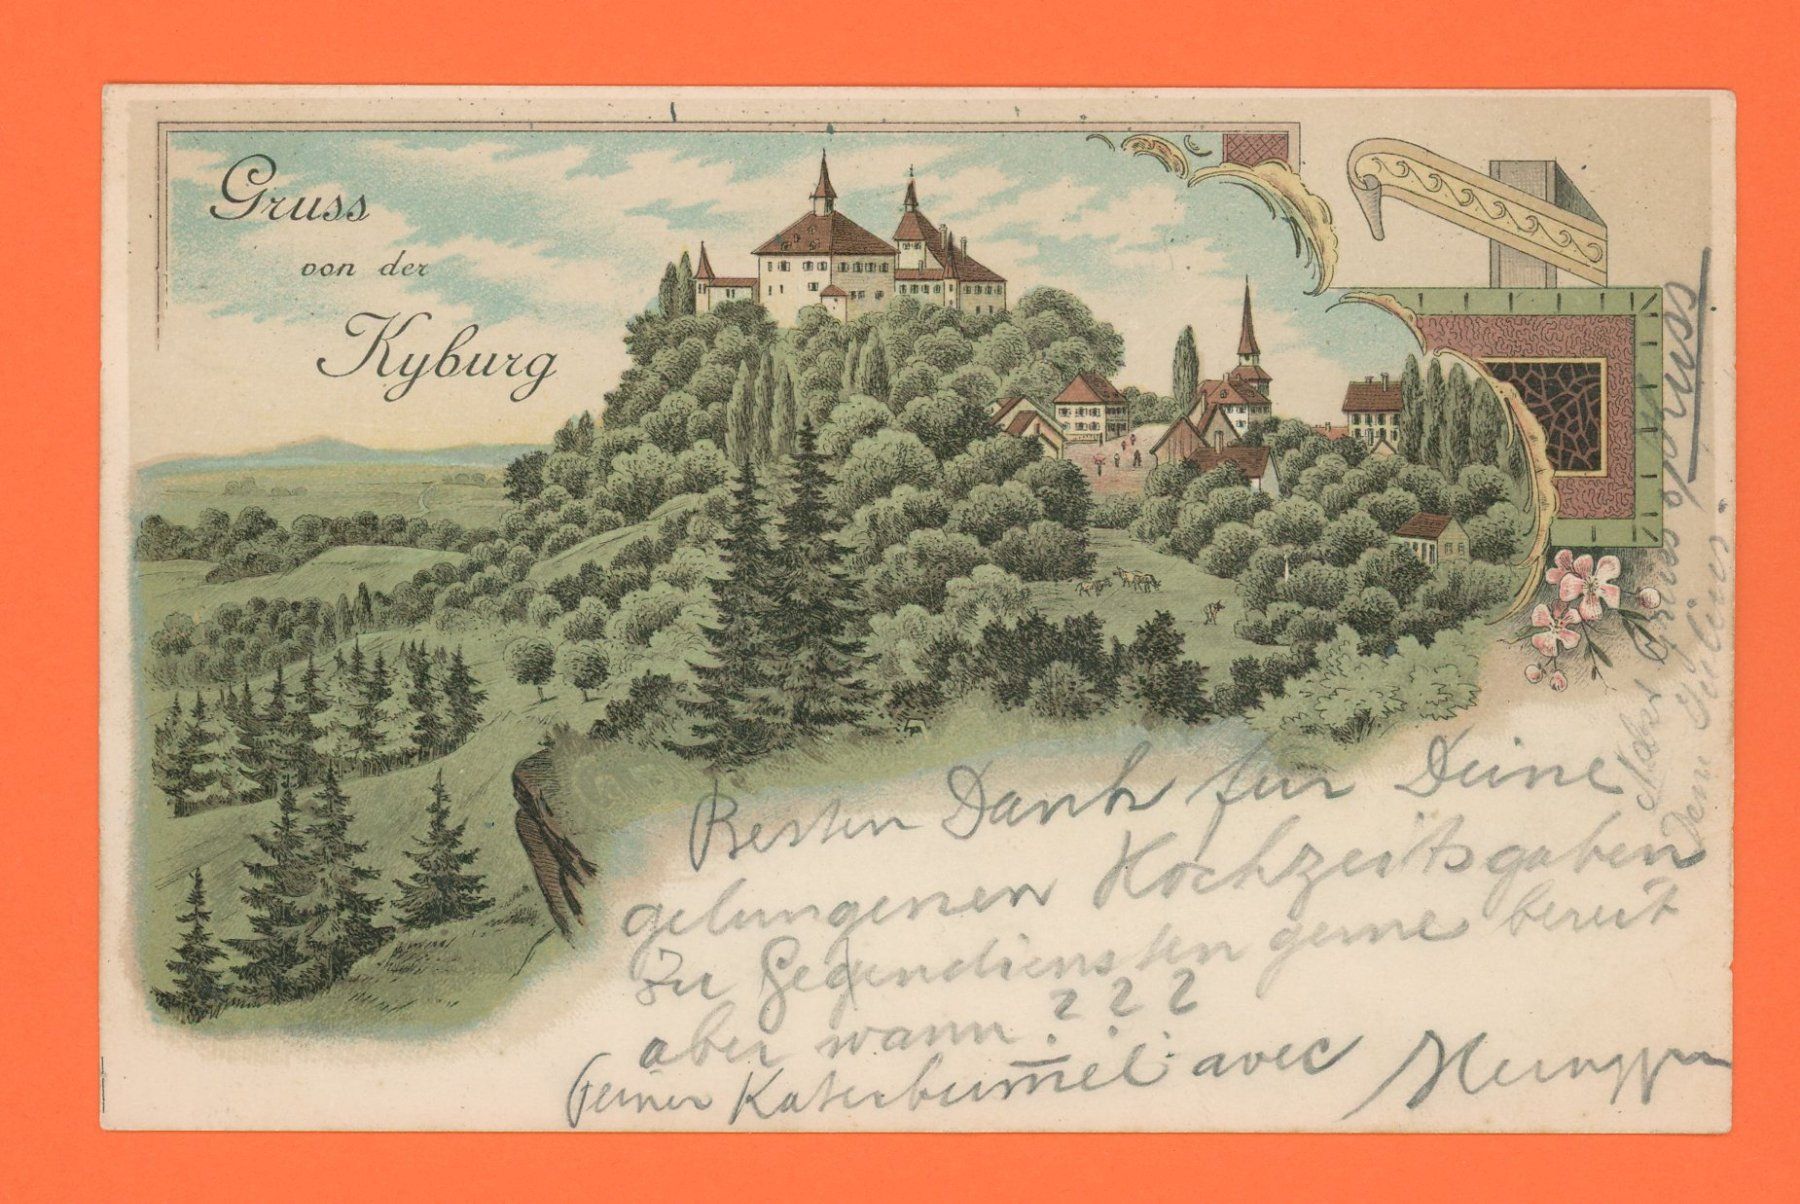 Gruss
von der
Kyburg
Besten Dank für Deine
gelungenen Hochzeitsgaben
Zu Gegendiensten gerne bereit
aber wann ? ? ? ?
feiner Katerbummel avec
Gruss & Kuss
Dein Julius.